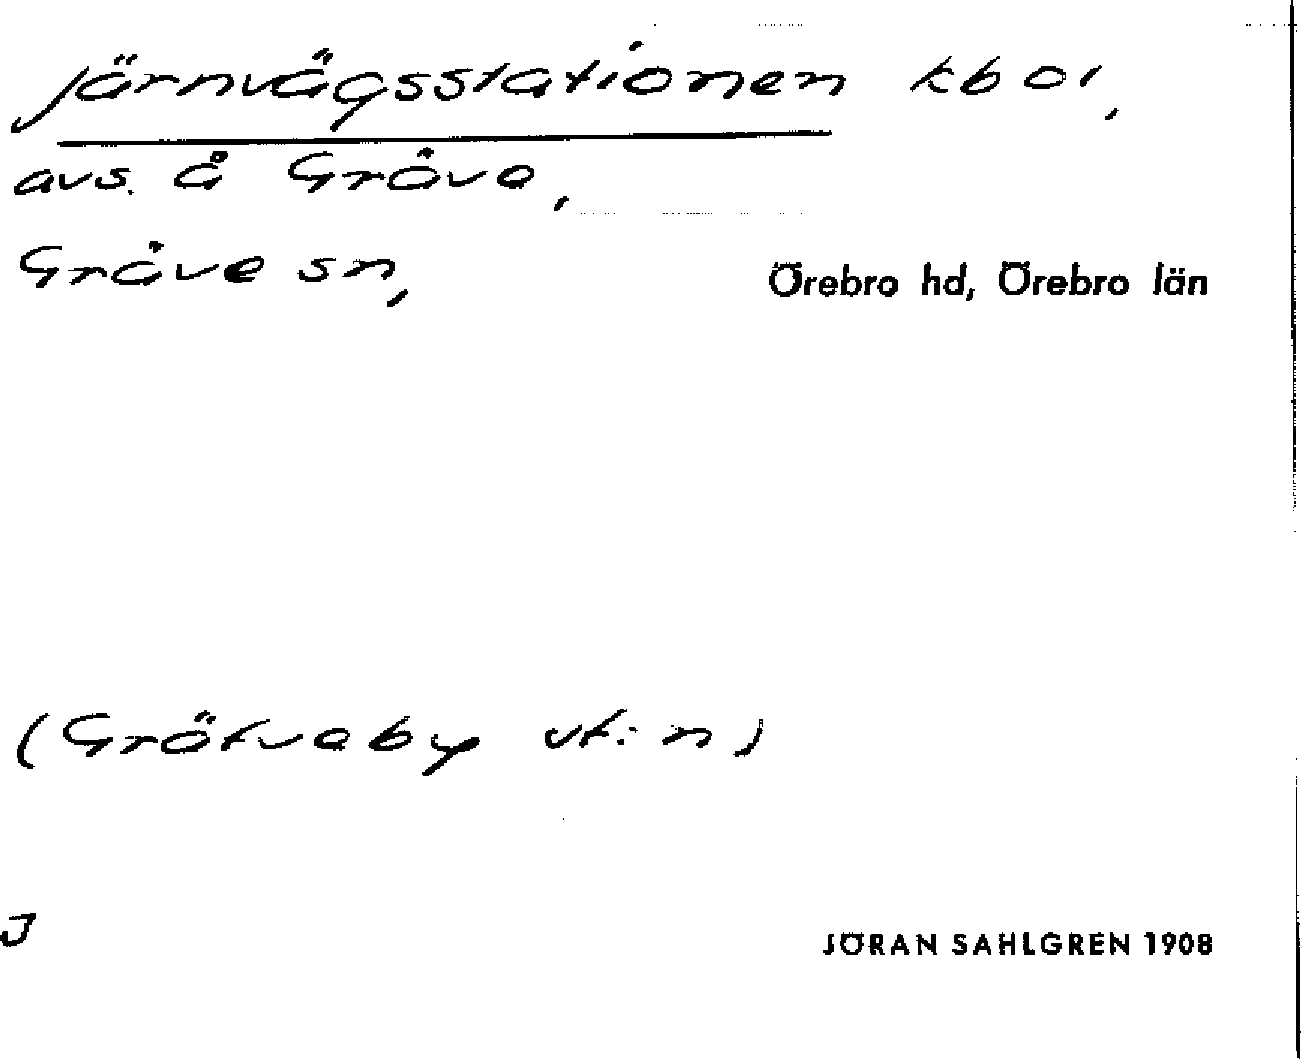 järnvägsstationen kboi,
avs. å Gräve,
Gräve sn, Örebro hd, Örebro län
(Grätveby vt:n)
J
JÖRAN SAHLGREN 1908